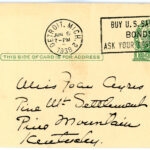 DETROIT, MICH. 2
JUN 6
7-PM
1938
BUY U.S. SA
BONDS
ASK YOUR
THIS SIDE OF CARD IS FOR ADDRESS
Miss Joan Ayres
Pine Mt. Settlement
Pine Mountain
Kentucky.